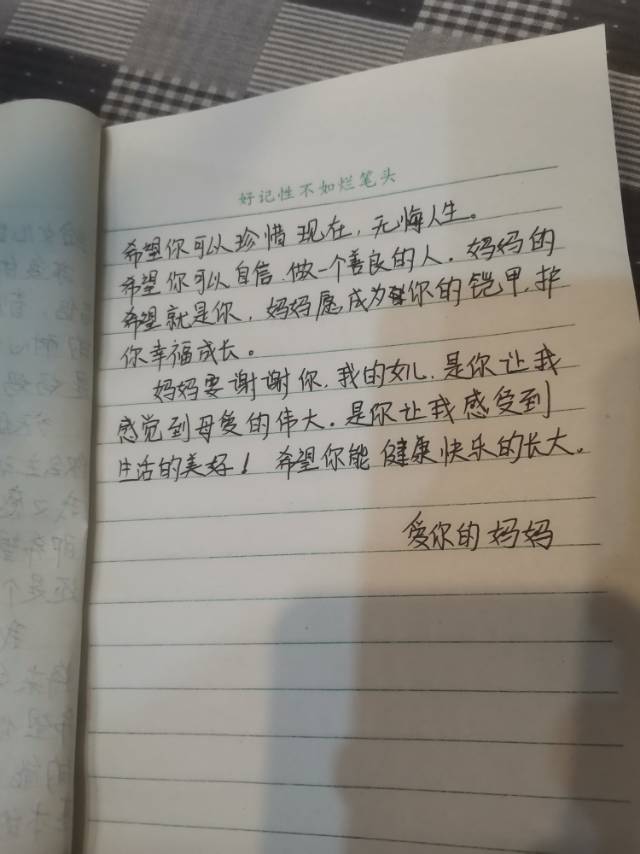 好记性不如烂笔头
希望你可以珍惜现在，无悔人生。
希望你可以自信.做一个善良的人.妈妈的
希望就是你.妈妈愿成为你的铠甲.护
你幸福成长。
妈妈要谢谢你.我的女儿.是你让我
感觉到母爱的伟大.是你让我感受到
生活的美好！希望你能健康快乐的长大。
爱你的妈妈